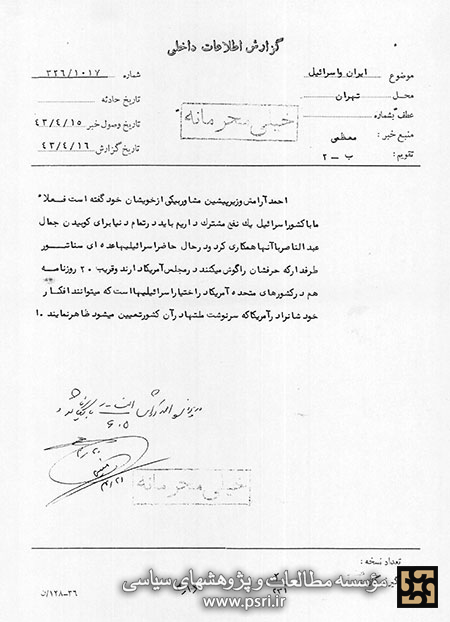 گزارش اطلاعات داخلی
موضوع ایران و اسرائیل
محل تهران
عطف بشماره
منبع خبر : معظمی
تقویم : ب ـ ۲
شماره ۳۲۶/۱۰۱۷
تاریخ حادثه
تاریخ وصول خبر ۴۳/۴/۱۵
تاریخ گزارش ۴۳/۴/۱۶
خیلی محرمانه
احمد آرامش وزیر پیشین مشاور بیکی از خویشان خود گفته است فعلا"
ما با کشور اسرائیل یك نفع مشترك داریم باید در تمام دنیا برای کوبیدن جمال
عبد الناصر با آنها همکاری کرد و در حال حاضر اسرائیلیها عده ای سناتور
طرفدار که حرفشان را گوش میکنند در مجلس آمریکا دارند و قریب ۲۰ روزنامه
هم در کشورهای متحده آمریکا در اختیار اسرائیلیها است که میتوانند افکار
خود شانرا در آمریکا که سرنوشت ملتها در آن کشور تعیین میشود ظاهر نمایند ۱۰
خیلی محرمانه
تعداد نسخه :
مؤسسه مطالعات و پژوهشهای سیاسی
www.psri.ir
۳۶-۱۲۸/ن